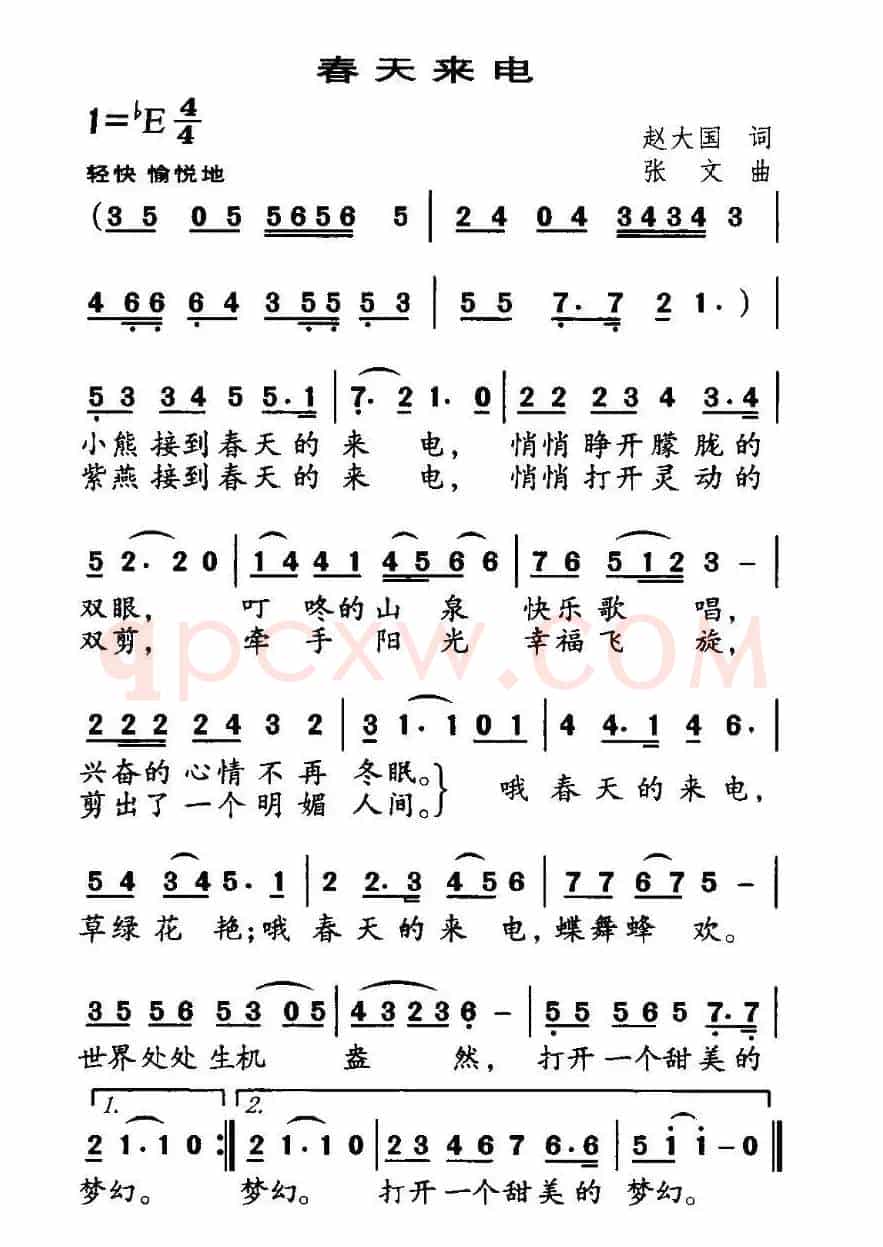 春天来电
1=♭E 4/4
赵大国 词
轻快 愉悦地
张 文 曲
(35 05 5656 5 | 24 04 3434 3 |
4 66 64 3 55 53 | 55 7.7 2 1.) |
53 34 5 5.1 | 7.2 1.0 | 22 23 4 3.4 |
小熊接到春天的来 电，悄悄睁开朦胧的
紫燕接到春天的来 电，悄悄打开灵动的
5 2.20 | 14 41 45 66 | 76 512 3 – |
双眼， 叮 咚的山 泉 快乐歌 唱，
双剪， 牵 手 阳 光 幸福飞 旋，
qpcxw.COM
222 243 2 | 3 1.101 | 4 4.1 4 6. |
兴奋的心情不再 冬眠。
剪出了一个明媚 人间。} 哦春天的来电，
54 345.1 | 2 2.3 456 | 77 675 – |
草绿花 艳；哦春天的来 电，蝶舞蜂 欢。
35 56 53 05 | 43236 – | 55 56 5 7.7 |
世界处处生机 盎 然， 打开一个甜美的
1. 2.
2 1.10 :| 2 1.10 | 23 467 6.6 | 5i i–0 ||
梦幻。 梦幻。 打开一个甜美的梦幻。